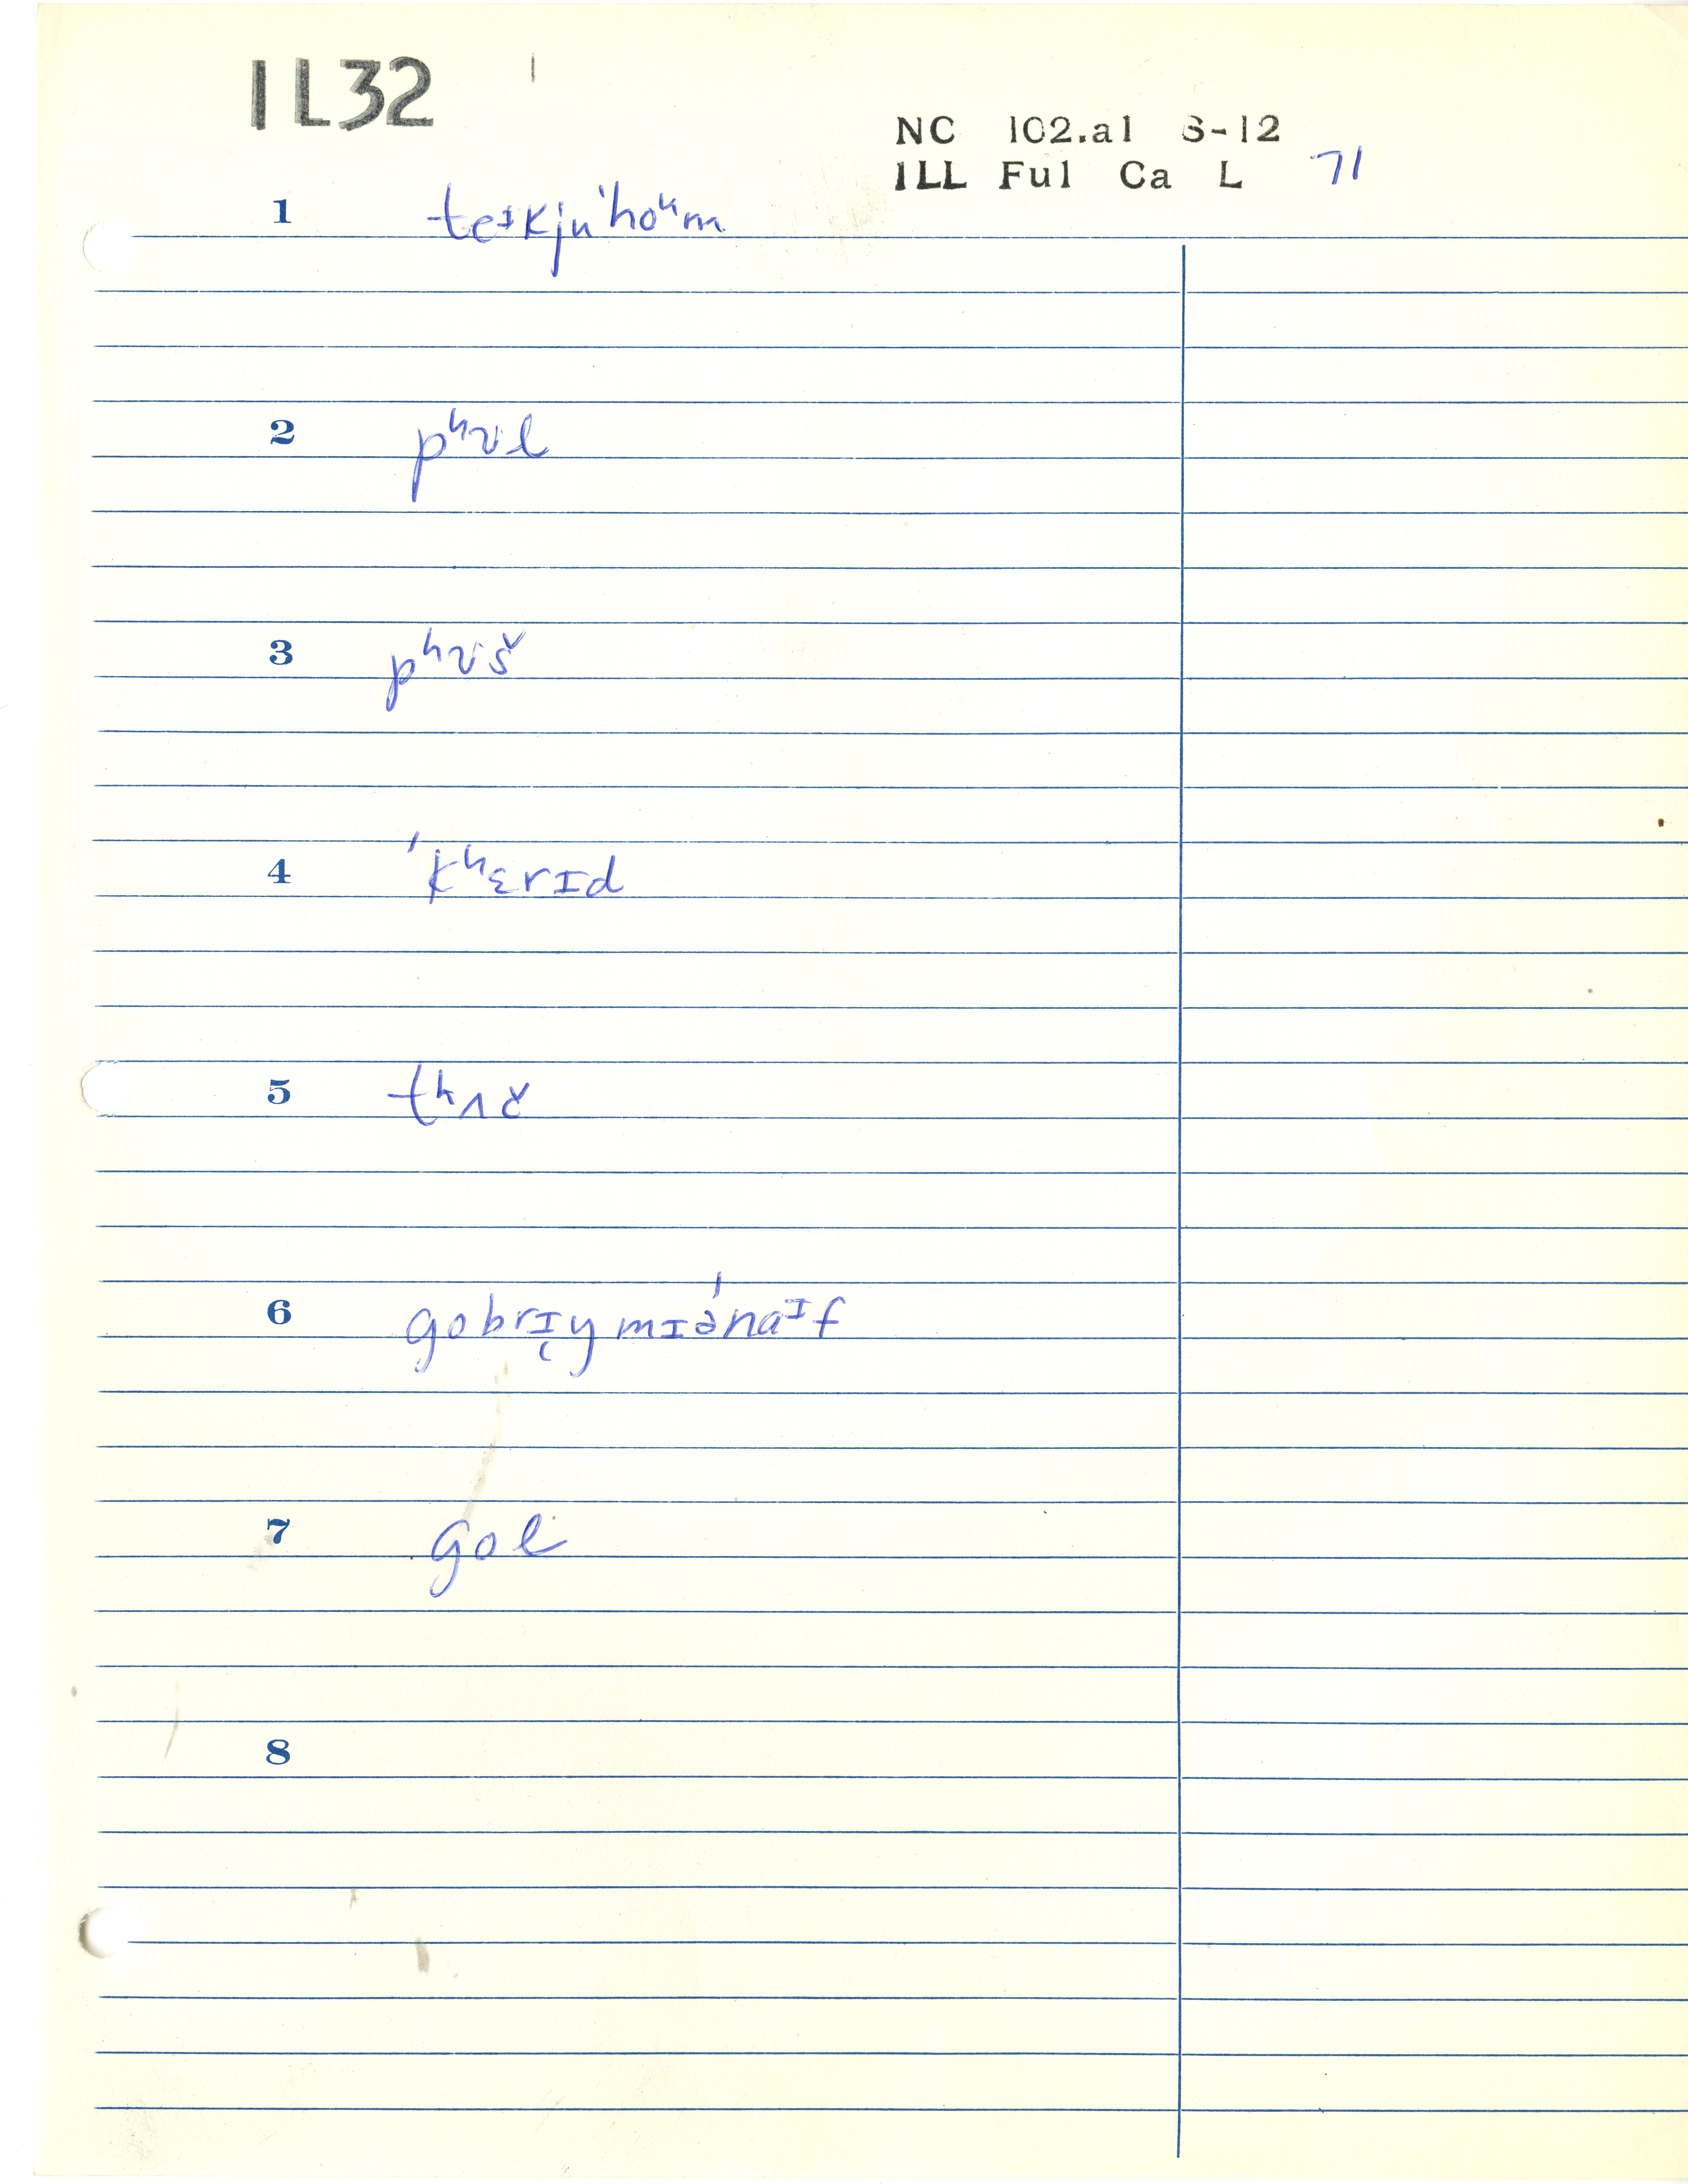 IL32
NC 102.a1 S-12
ILL Ful Ca L 71
1 teᶦkju'hoᵘm
2 pʰʊl
3 pʰʊš
4 'kʰɛrɪd
5 tʰʌč
6 gobrɪ̨y mɪə́naᶦf
7 gol
8